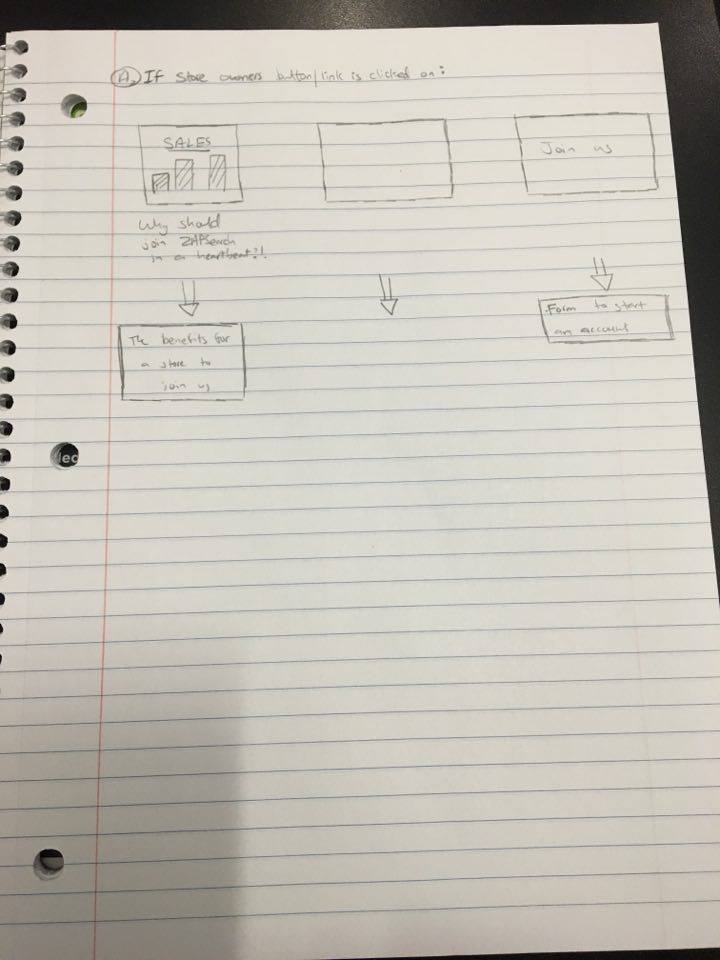 A. If Store owners button/link is clicked on:
SALES
Why should
join ZAPSearch
in a heartbeat?!
The benefits for
a store to
join us
Join us
Form to start
an account
lec